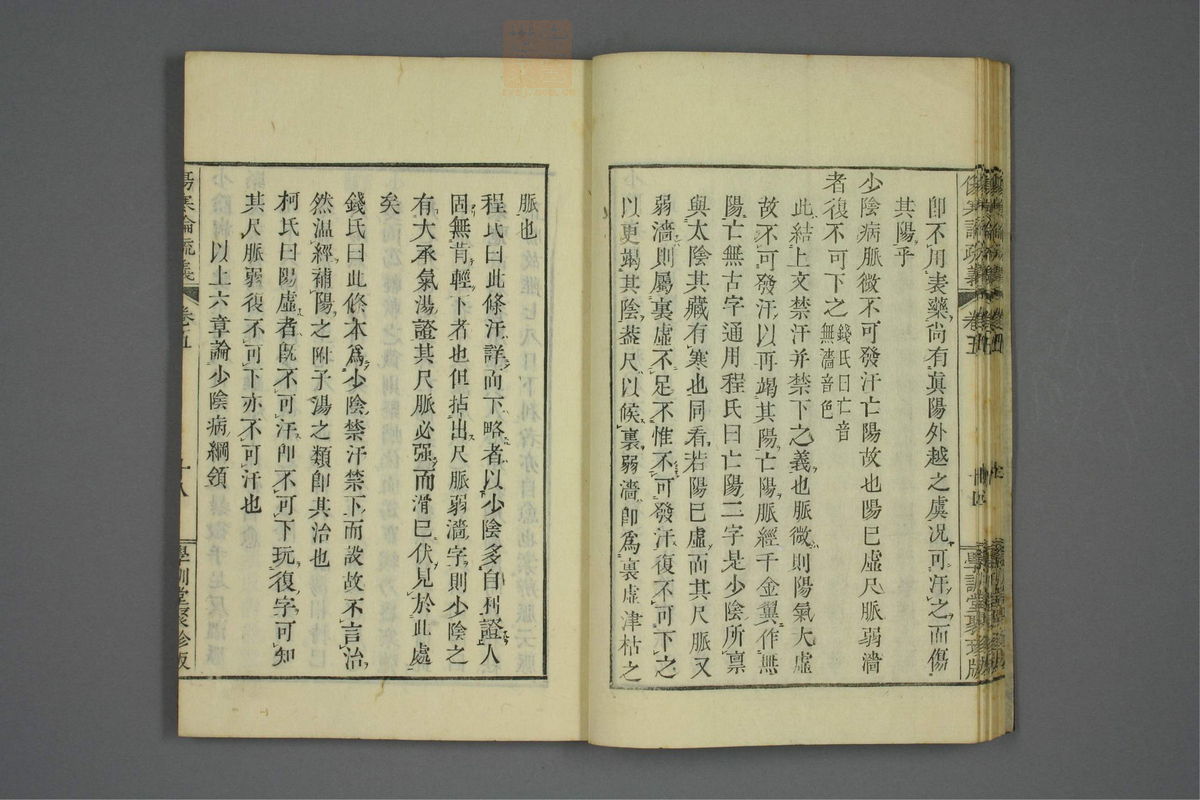 卽不用表藥尚有眞陽外越之虞況可汗之而傷
其陽乎
少陰病脈微不可發汗亡陽故也陽已虛尺脈弱濇
者復不可下之
錢氏曰亡音
無濇音色
此結上文禁汗并禁下之義也脈微則陽氣大虛
故不可發汗以再竭其陽亡陽脈經千金翼作無
陽亡無古字通用程氏曰亡陽二字是少陰所禀
與太陰其藏有寒也同看若陽已虛而其尺脈又
弱濇則屬裏虛不足不惟不可發汗復不可下之
以更竭其陰葢尺以候裏弱濇卽爲裏虛津枯之
脈也
程氏曰此條汗詳而下略者以少陰多自利證人
固無肯輕下者也但拈出尺脈弱濇字則少陰之
有大承氣湯證其尺脈必强而滑已伏見於此處
矣
錢氏曰此條本爲少陰禁汗禁下而設故不言治
然溫經補陽之附子湯之類卽其治也
柯氏曰陽虛者旣不可汗卽不可下玩復字可知
其尺脈弱復不可下亦不可汗也
以上六章論少陰病綱領
傷寒論疏義
卷五
十八
學訓堂聚珍版